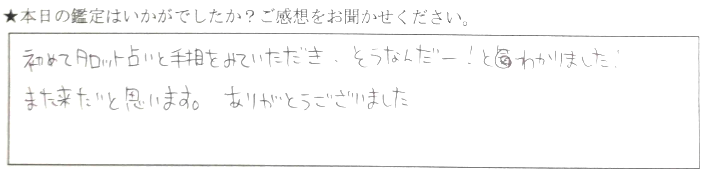 ★本日の鑑定はいかがでしたか？ご感想をお聞かせください。
初めてタロット占いと手相をみていただき、そうなんだー！とわかりました！
また来たいと思います。 ありがとうございました